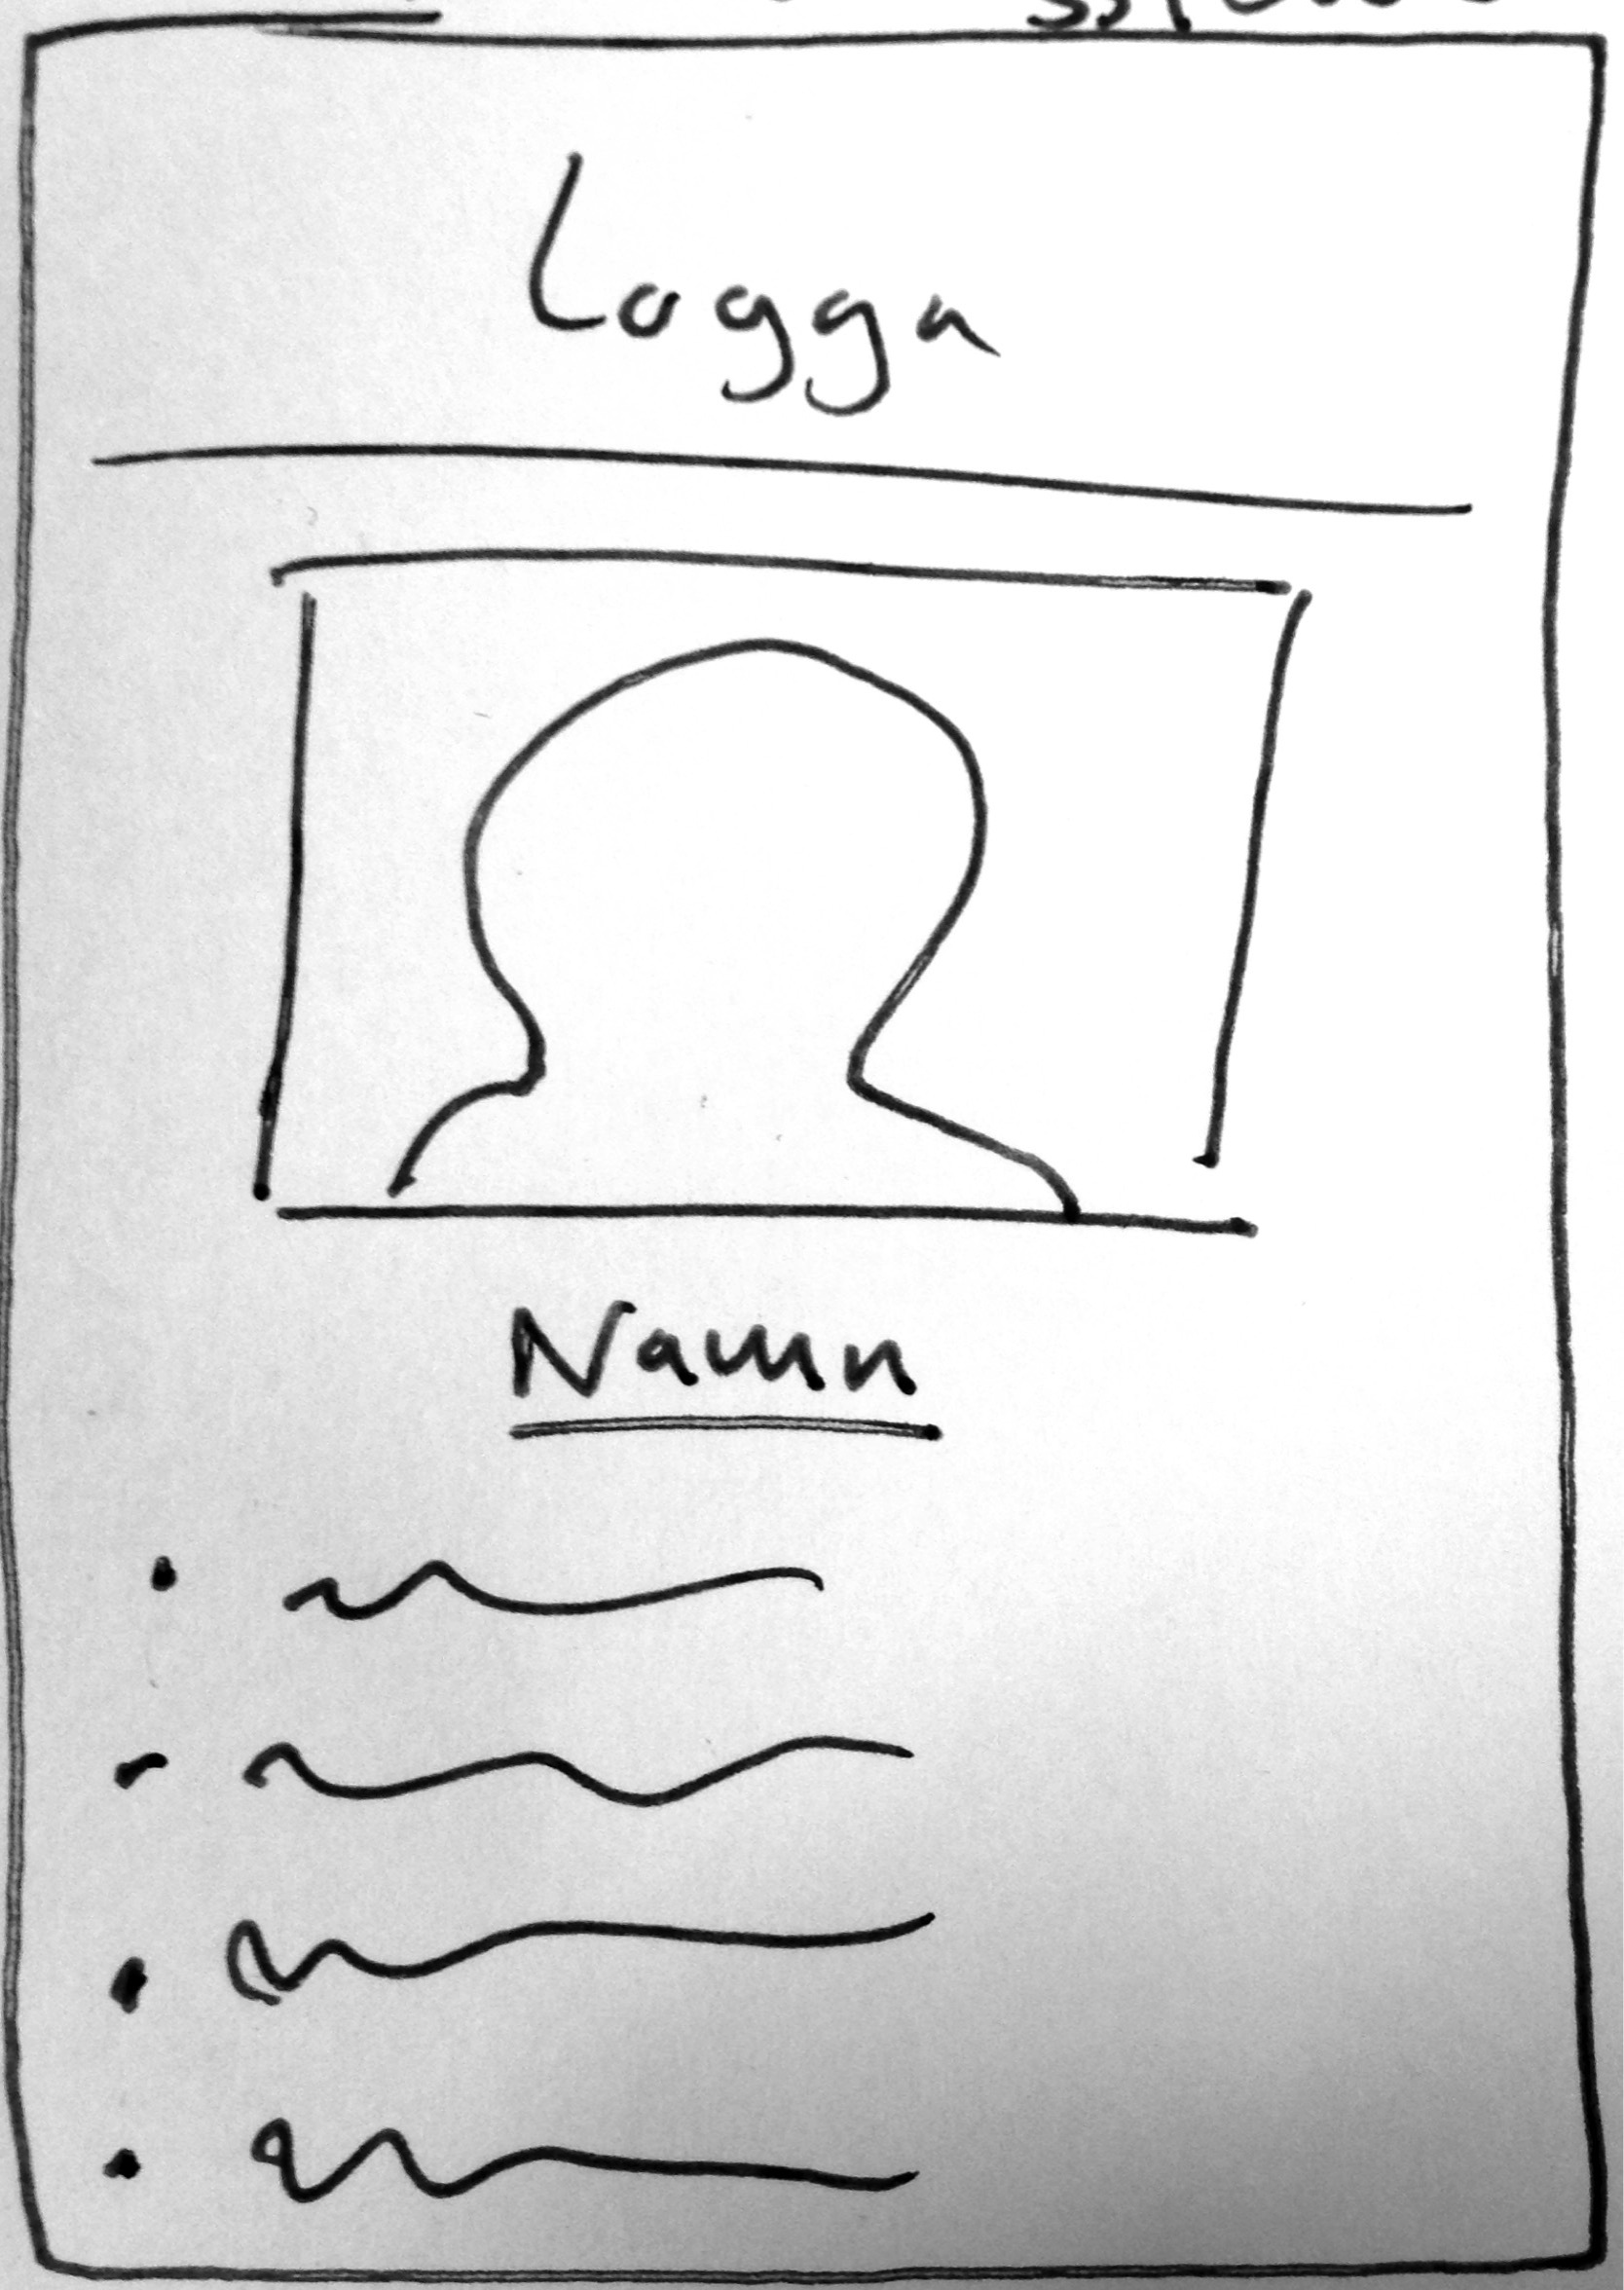 Logga
Namn